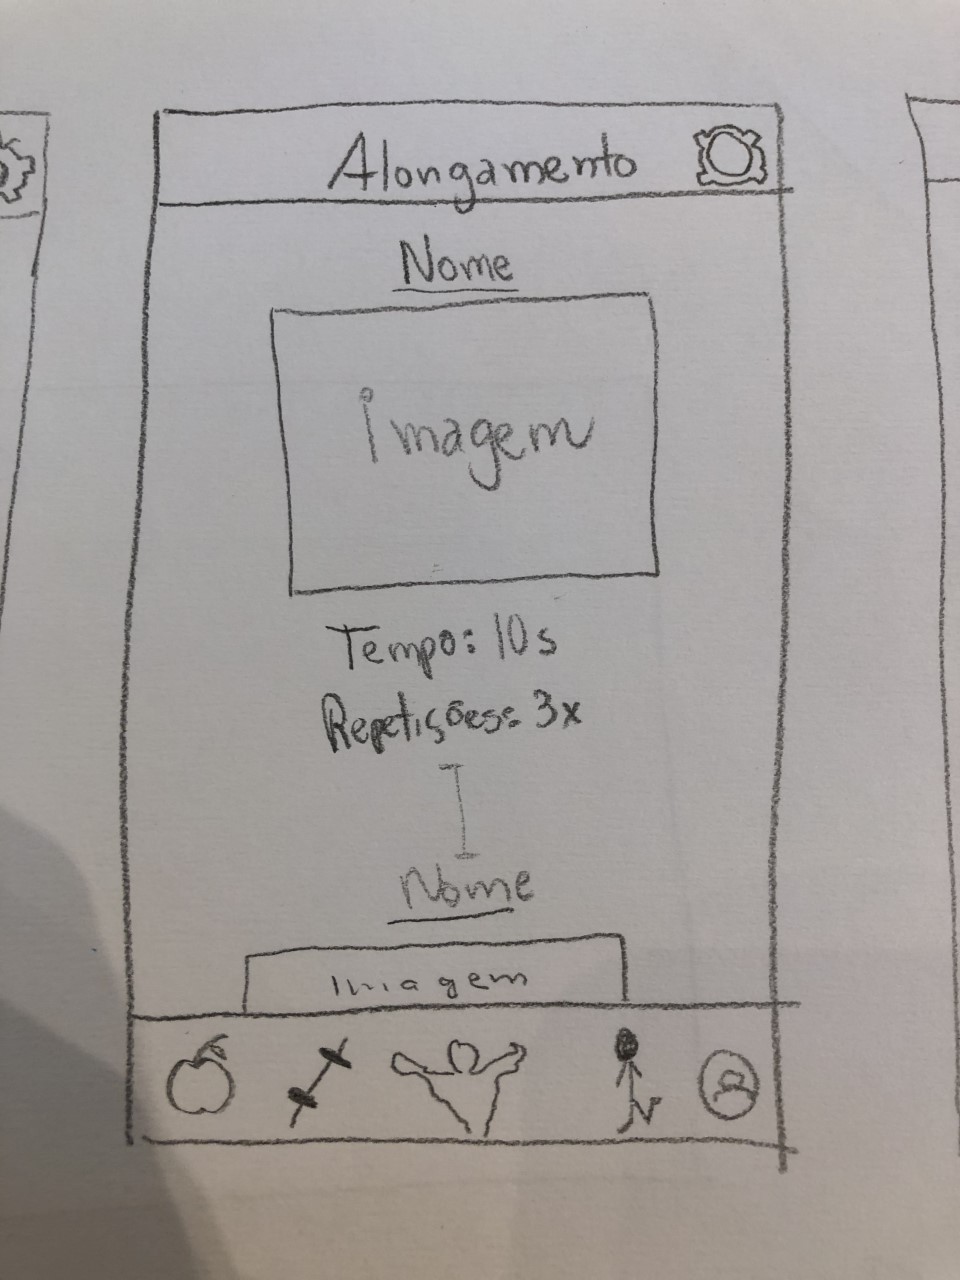 Alongamento
Nome
imagem
Tempo: 10s
Repetişões: 3x
Nome
Imagem